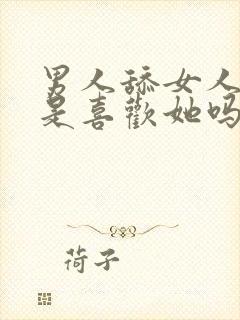 男人舔女人
是喜歡她吗
荷子